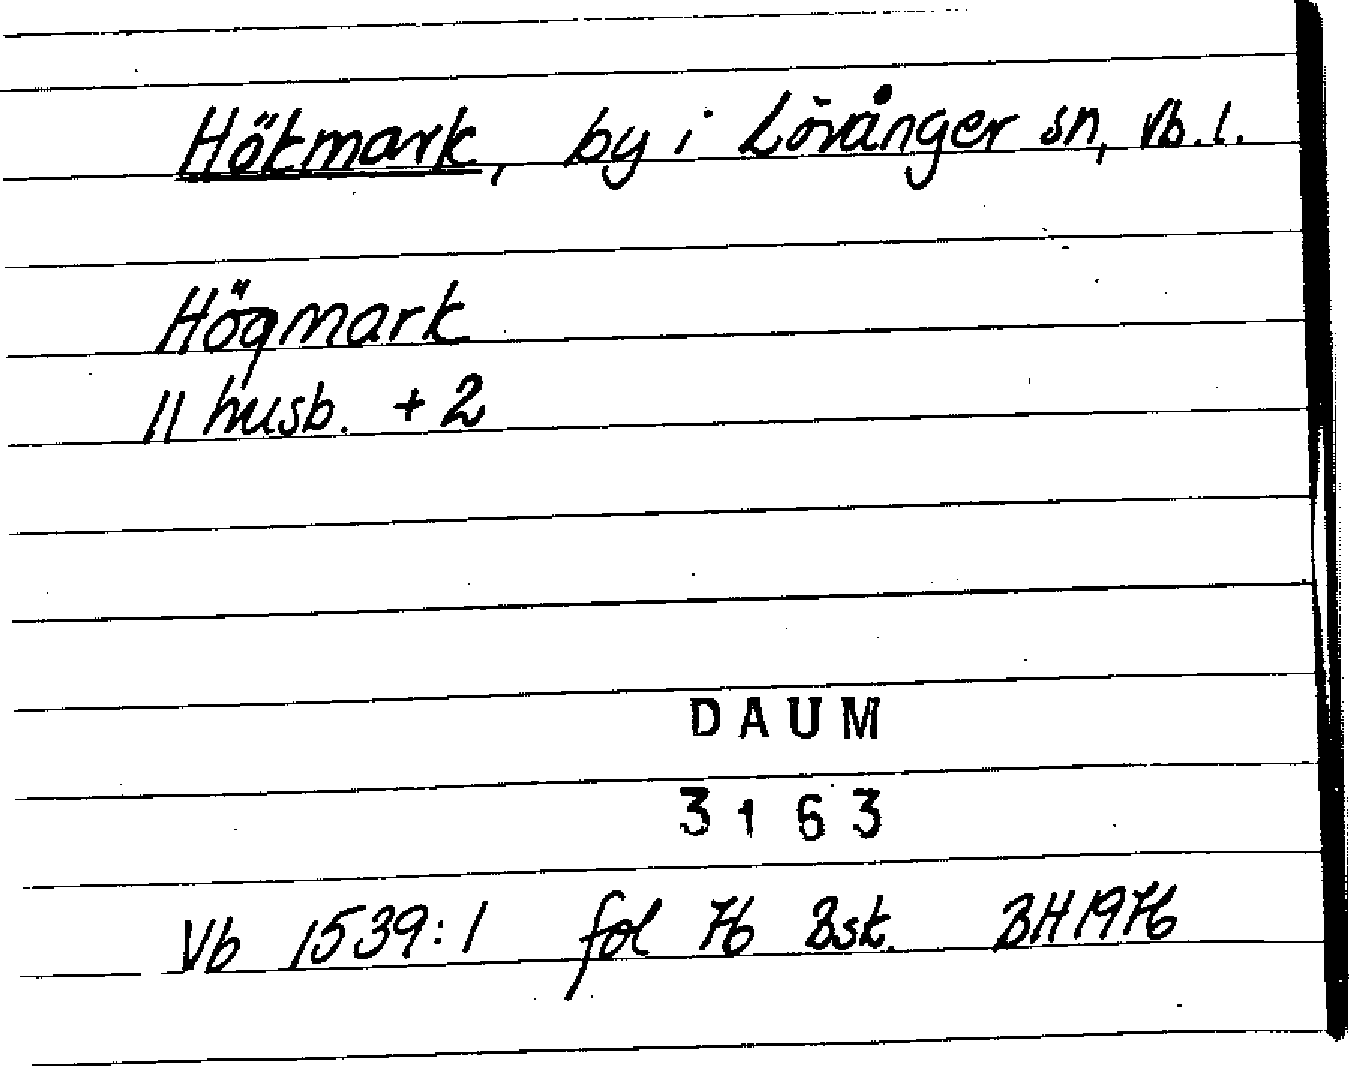 Hökmark, by i Lövånger sn, Vb.l.
Högmark
11 husb. + 2
DAUM
3163
Vb 1539:1 fol 76 Bsk. BH1976